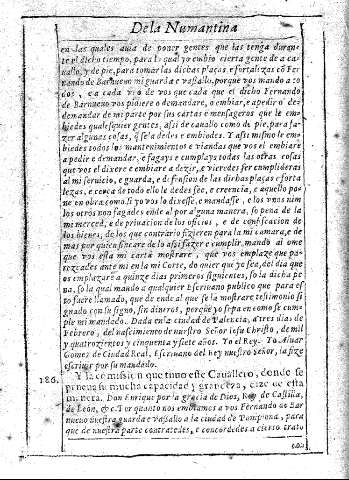 De la Numantina
en las quales auia de poner gentes que las tenga duran-
te el dicho tiempo, para lo qual yo embio cierta gente de a ca-
uallo, y de pie, para tomar las dichas plaças e fortalezas cō Fer-
nando de Barnueuo mi guarda e vasallo, porque vos mando a to
dos, e a cada vno de vos que cada que el dicho Fernando
de Barnueuo vos pidiere o demandare, o embiare, a pedir o de-
demandar de mi parte por sus cartas e mensageros que le em-
biedes qualesquier gentes, assi de cauallo como de pie, para fa-
zer algunas cosas, q̃ se a dedes e embiedes. Y assi mismo le em-
biedes todos los mantenimientos e viandas que vos el embiare
a pedir e demandar, e fagays e cumplays todas las otras cosas
que vos el dixere e embiare a dezir, y vieredes ser cumplideras
al mi seruicio, e guarda, e defension de las dichas plaças e forta-
lezas, e cerca de todo ello le dedes fee, e creencia, e aquello pon-
ne en obra como si yo vos lo dixesse, e mandasse, e los vnos nin
los otros non fagades ende al por alguna manera, so pena de la
mi merced, e de priuacion de los oficios, e de confiscacion de
los bienes, de los que contrario fizieren para la mi camara, e de
mas por quien fincare de lo assi fazer e cumplir, mando al ome
que vos esta mi carta mostrare, que vos emplaze que pa-
rezcades ante mi en la mi Corte, do quier que yo sea, del dia que
os emplazare a quinze dias primeros siguientes, so la dicha pe
na, so la qual mando a qualquier Escriuano publico que para es-
to fuere llamado, que de ende al que se la mostrare testimonio si
gnado con su signo, sin dineros, porque yo sepa en como se cum-
ple mi mandado. Dada en la ciudad de Palencia, a tres dias de
Febrero, del nascimiento de nuestro Señor Iesu Christo, de mil
y quatrozientos y cincuenta y siete años. Yo el Rey. Yo Aluar
Gomez de Ciudad Real, Escriuano del Rey nuestro señor, la fize
escriuir por su mandado.
186. Y la comission que tuuo este Cauallero, donde se
prueua su mucha capacidad y grandeza, dize de esta
manera. Don Enrique por la gracia de Dios, Rey de Castilla,
de León, &c. Por quanto nos embiamos a vos Fernando de Bar
nueuo nuestra guarda e vasallo a la ciudad de Pamplona, para
que de nuestra parte contratedes, e concordedes a cierto trato